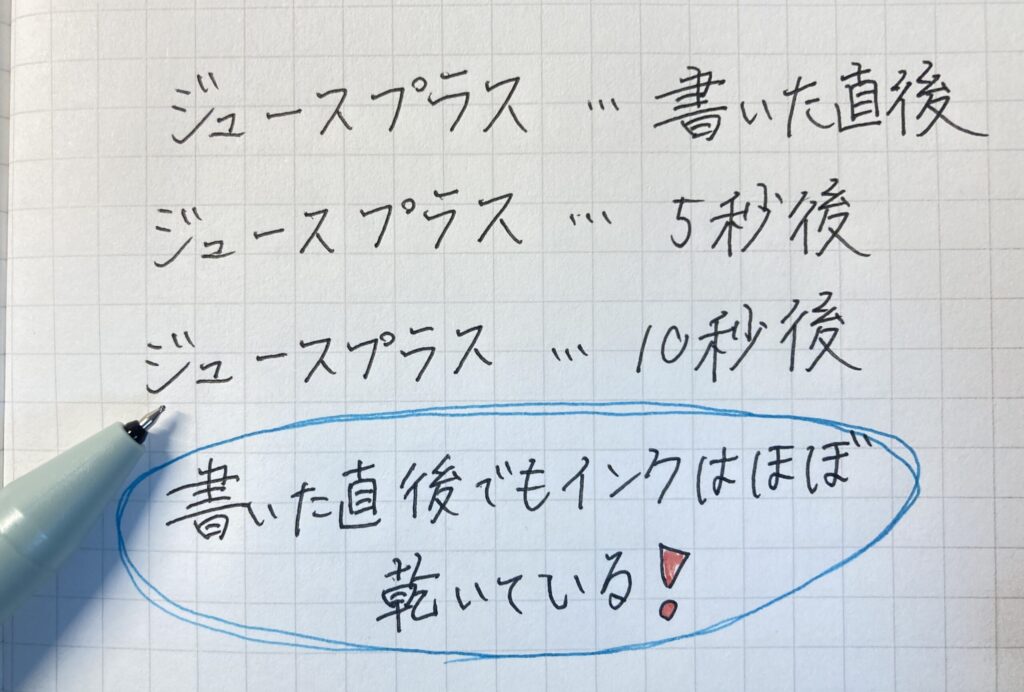 ジュースプラス … 書いた直後
ジュースプラス … 5秒後
ジュースプラス … 10秒後
書いた直後でもインクはほぼ
乾いている!